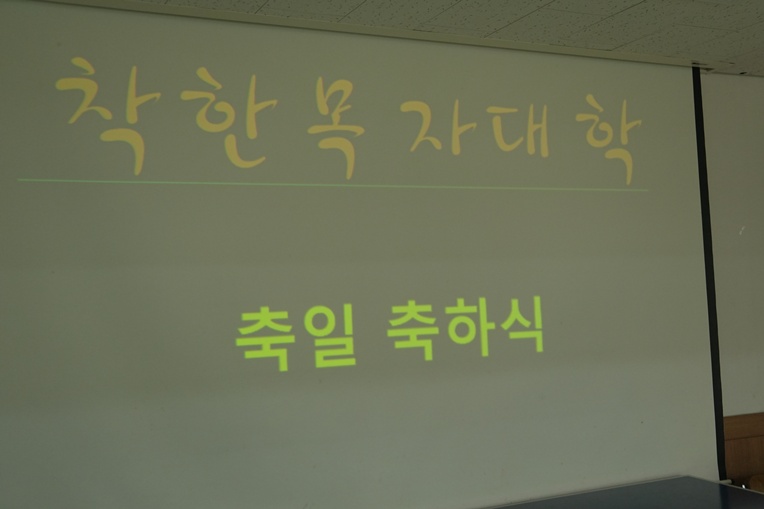 착한목자대학
축일 축하식